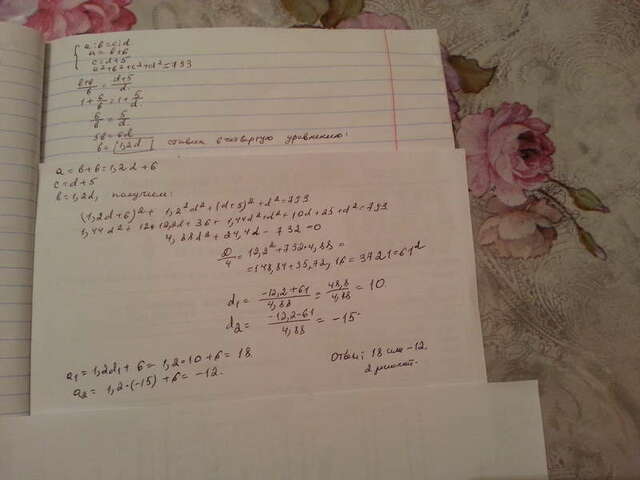 a:b=c:d
a=b+6
c=d+5
a²+b²+c²+d²=793
b+6/b = d+5/d
1+6/b=1+5/d
6/b=5/d
5b=6d
b=[1,2d] ставим в четвертую уравнению:
a=b+6=1,2d+6
c=d+5
b=1,2d, получим:
(1,2d+6)²+1,2²d²+(d+5)²+d²=793
1,44d²+12·1,2d+36+1,44d²+d²+10d+25+d²=793
4,88d²+24,4d-732=0
D/4=12,2²+732·4,88=
=148,84+3572,16=3721=61²
d₁=-12,2+61/4,88=48,8/4,88=10
d₂=-12,2-61/4,88=-15
a₁=1,2d₁+6=1,2·10+6=18.
a₂=1,2·(-15)+6=-12.
Ответ: 18 или -12.